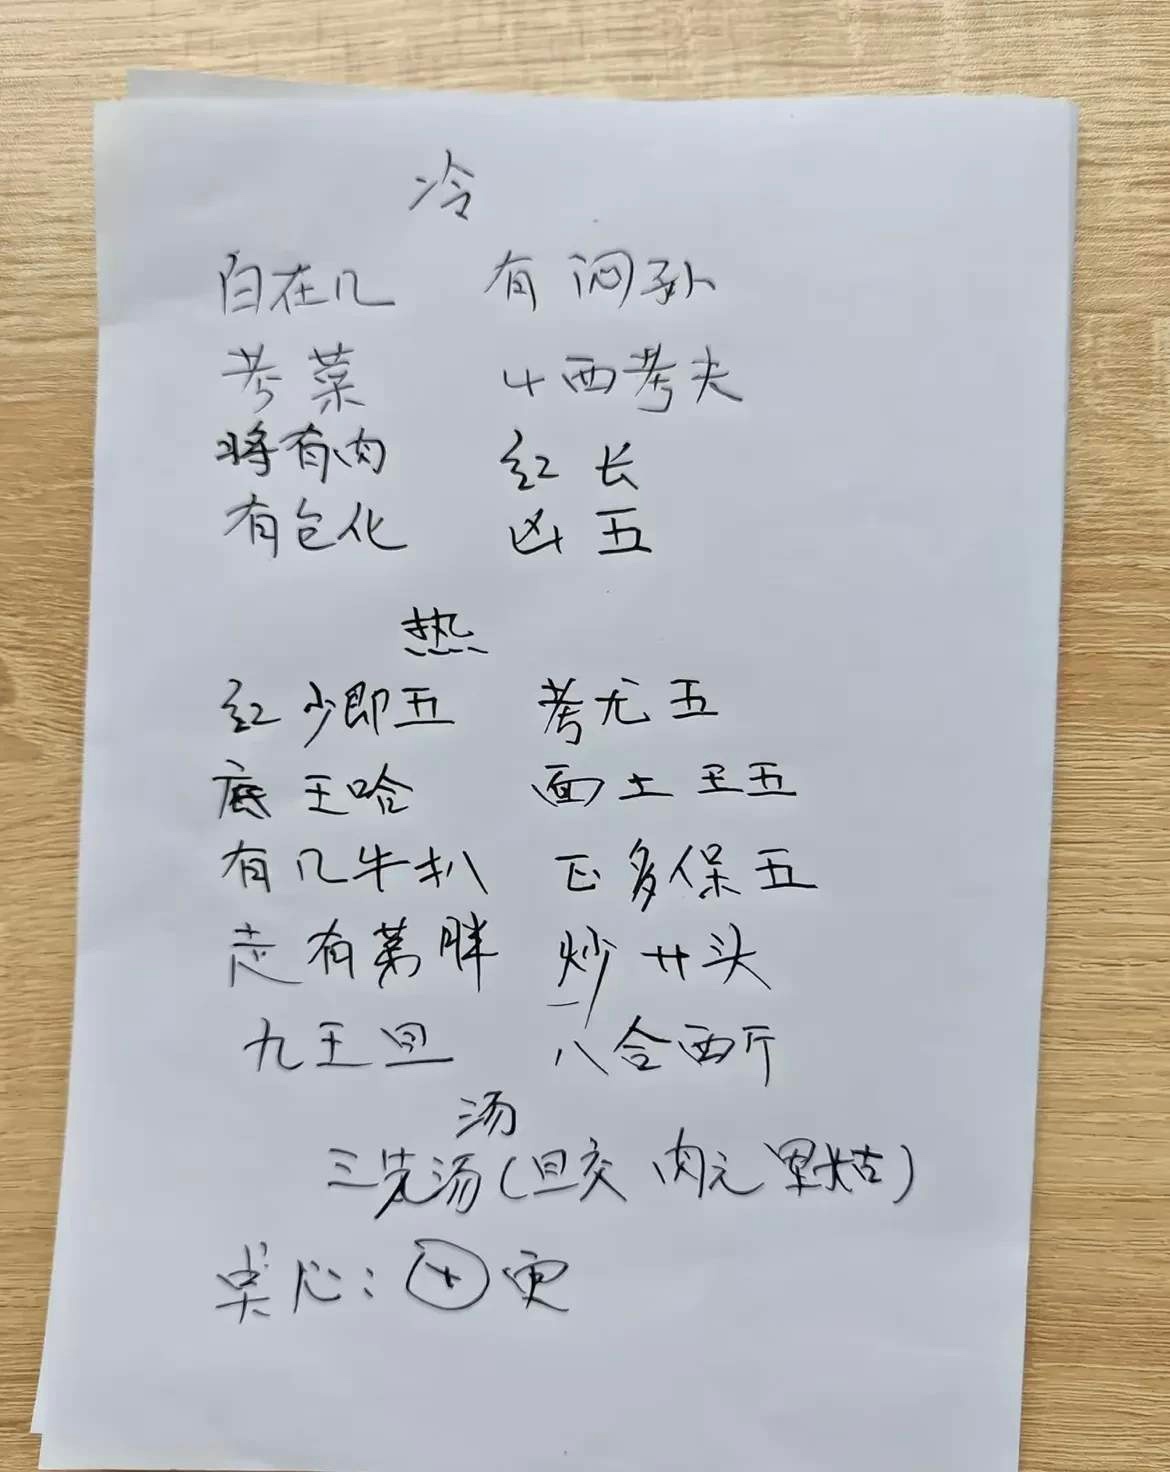 冷
白在几 有闷孙
考菜 山西考夫
将有肉 红长
有包化 凶五
热
红少即五 考尤五
底王哈 面土王五
有几牛扒 正多保五
志有第胖 炒廿头
九王旦 八合西斤
汤
三先汤(旦交 肉元 里枯)
点心: